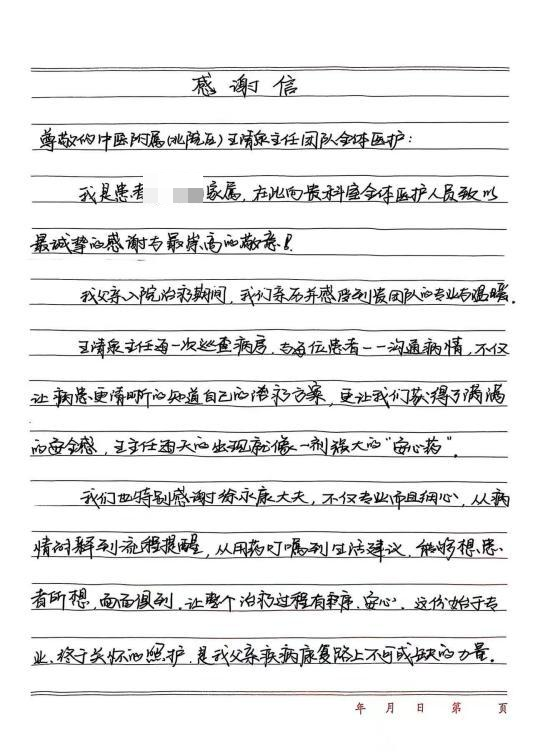 感谢信
尊敬的中医附属(北院区)王清泉主任团队全体医护:
我是患者 家属,在此向贵科室全体医护人员致以
最诚挚的感谢与最崇高的敬意!
我父亲入院治疗期间,我们亲历并感受到贵团队的专业与温暖.
王清泉主任每一次巡查病房,与每位患者一一沟通病情,不仅
让病患更清晰的知道自己的治疗方案,更让我们获得了满满
的安全感,王主任每天的出现就像一剂强大的“安心药”.
我们也特别感谢徐永康大夫,不仅专业而且细心,从病
情讲解到流程提醒,从用药叮嘱到生活建议,能够想患
者所想,面面俱到,让整个治疗过程有秩序、安心.这份始于专
业、终于关怀的照护,是我父亲疾病康复路上不可或缺的力量.
年 月 日 第 頁